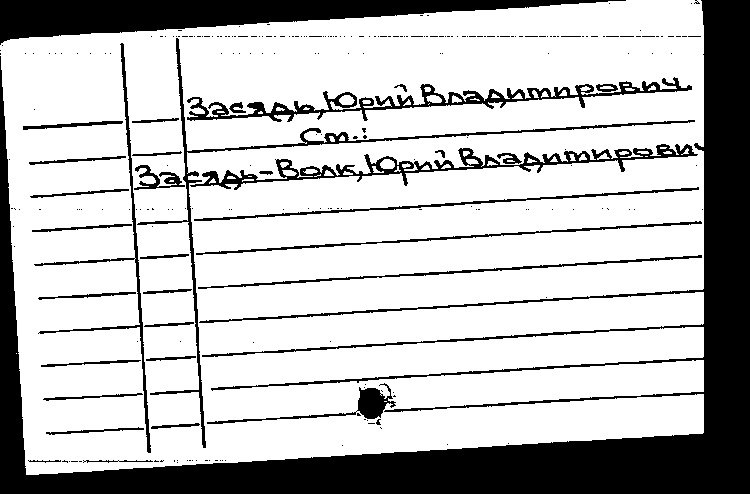 Засядь, Юрий Владимирович.
См.:
Засядь-Волк, Юрий Владимирович